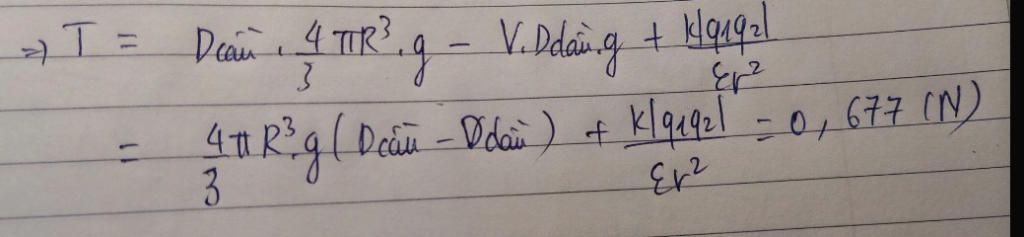 ⇒ T = Dcầu . 4/3 πR³. g − V.Ddầu.g + k|q1q2|/εr²
= 4πR³/3 .g (Dcầu − Ddầu) + k|q1q2|/εr² = 0,677 (N)